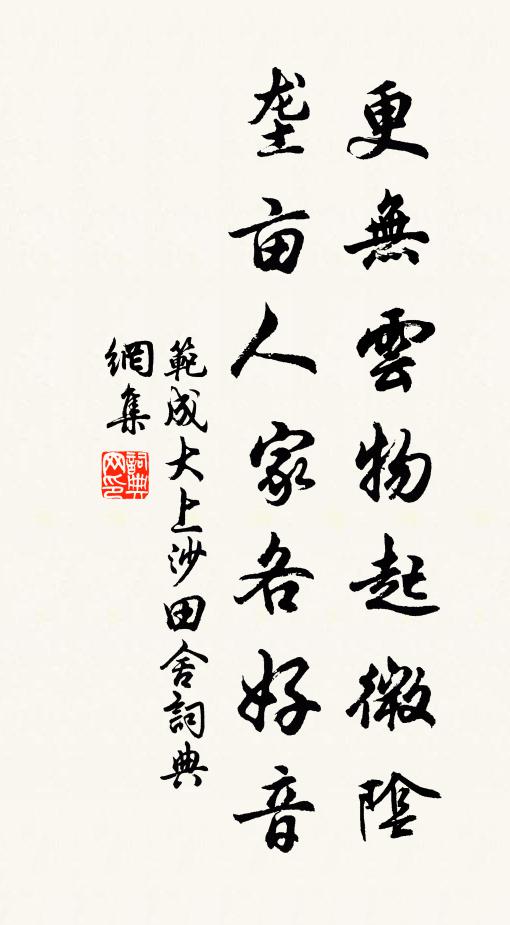 更無雲物起微陰
垄亩人家各好音
範成大上沙田舍詞典
網集
詞典
网印